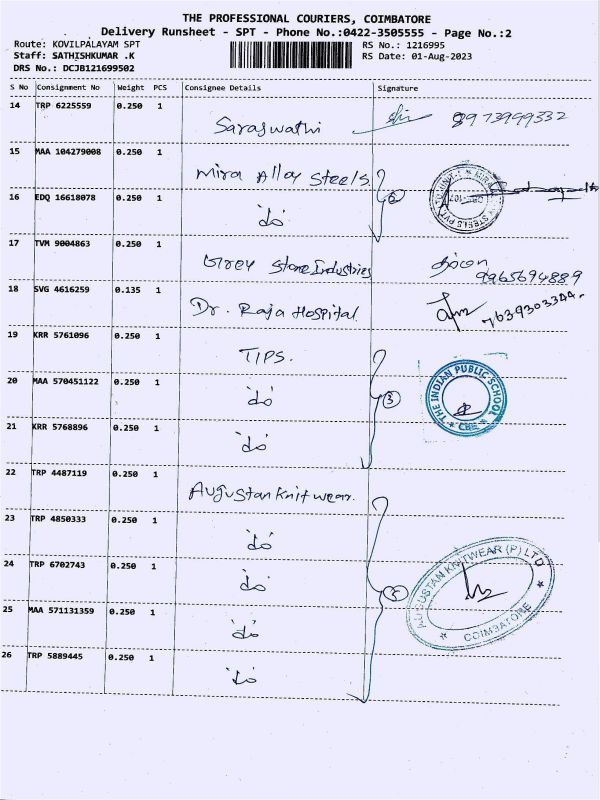 THE PROFESSIONAL COURIERS, COIMBATORE
Delivery Runsheet - SPT - Phone No.:0422-3505555 - Page No.:2
Route: KOVILPALAYAM SPT
Staff: SATHISHKUMAR .K
DRS No.: DCJB121699502
RS No.: 1216995
RS Date: 01-Aug-2023
S No Consignment No Weight PCS Consignee Details Signature
14 TRP 6225559 0.250 1 Saraswathi
15 MAA 104279008 0.250 1 Mira Alloy Steels
16 EDQ 16618078 0.250 1 "do"
17 TVM 9004863 0.250 1 Grey Stone Industries 9965694889
18 SVG 4616259 0.135 1 Dr. Raja Hospital
19 KRR 5761096 0.250 1 TIPS.
20 MAA 570451122 0.250 1 "do" 3 THE INDIAN PUBLIC SCHOOL * CBE *
21 KRR 5768896 0.250 1 "do"
22 TRP 4487119 0.250 1 Augustan Knitwear.
23 TRP 4850333 0.250 1 "do"
24 TRP 6702743 0.250 1 "do" AUGUSTAN KNITWEAR (P) LTD * COIMBATORE *
25 MAA 571131359 0.250 1 "do"
26 TRP 5889445 0.250 1 "do"